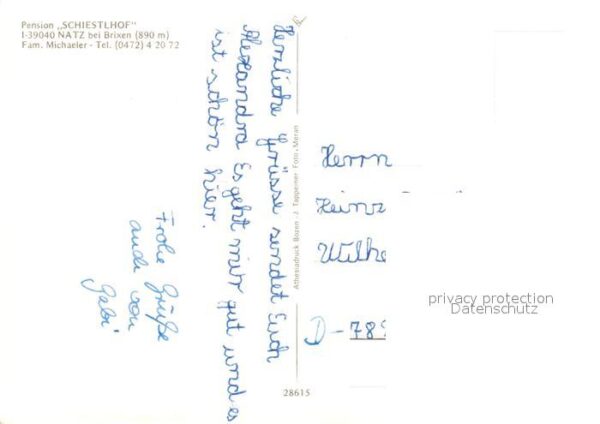 Pension „SCHIESTLHOF"
I-39040 NATZ bei Brixen (890 m)
Fam. Michaeler - Tel. (0472) 4 20 72
Herzliche Grüsse sendet Euch
Alexandra Es geht mir gut und es
ist schön hier.
Frohe Grüße
auch von
Gabi
Athesiadruck Bozen - J. Tappeiner Foto, Meran
28615
Herrn
Heinz
Wilhe
D-789
privacy protection
Datenschutz